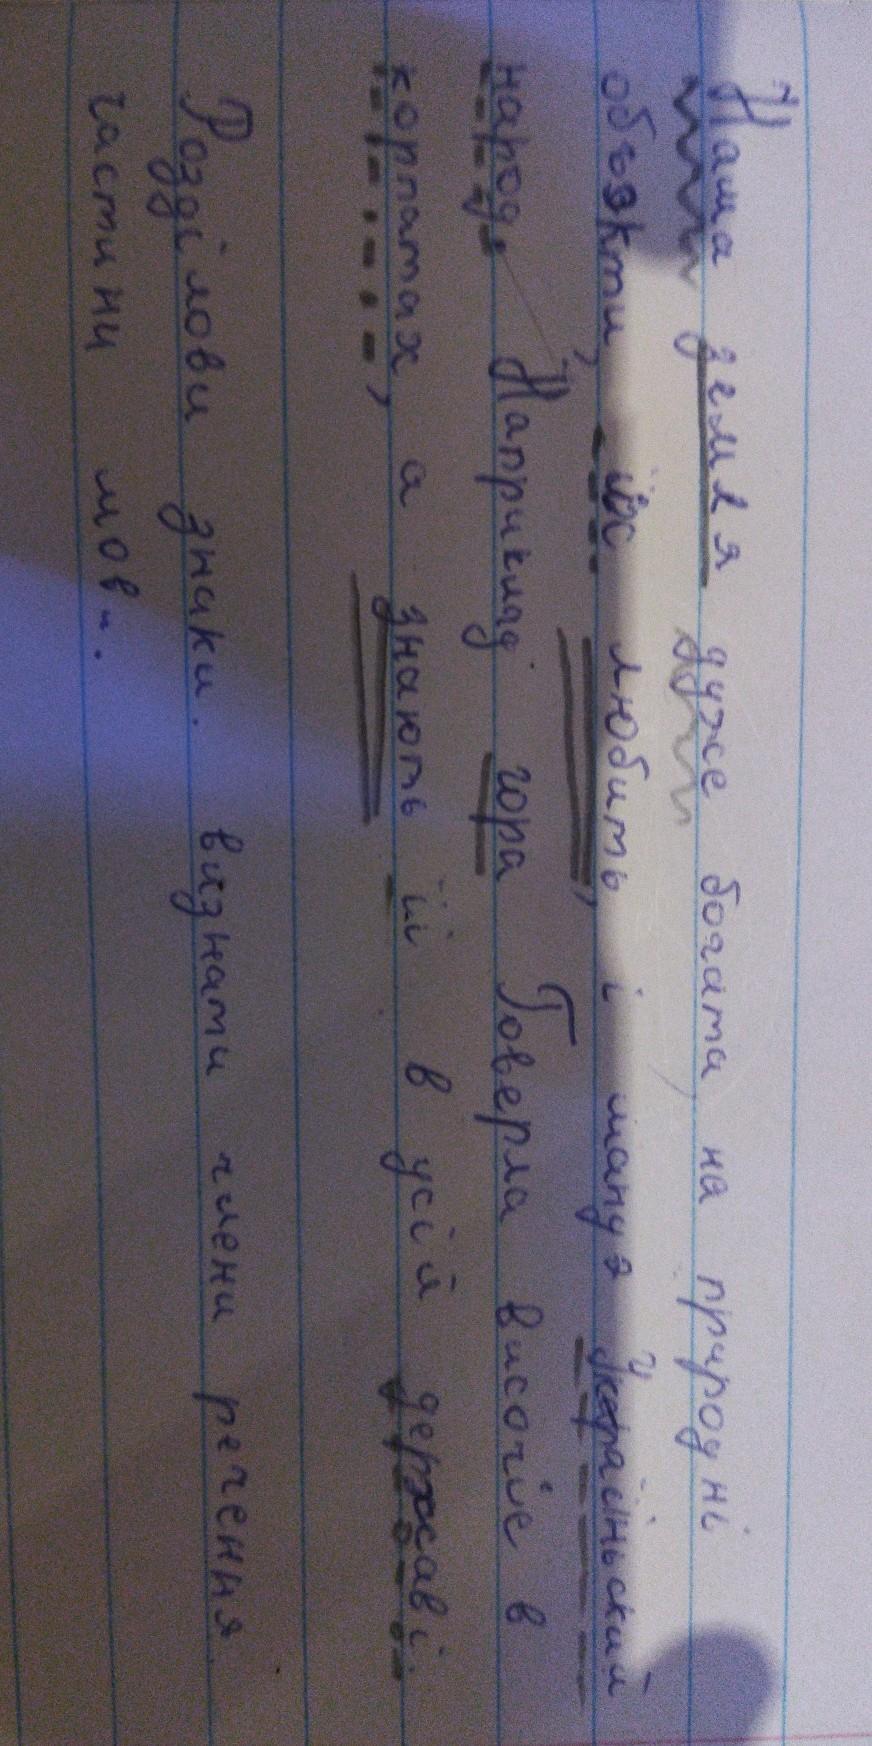 Наша земля дуже богата на природні
обьэкти, їх любить, і шанує Украіньский
народ. Наприклад гора Говерла височіє в
корпатах, а знають її в усій державі.
Розділови знаки. визнати члени речення.
частини мови.